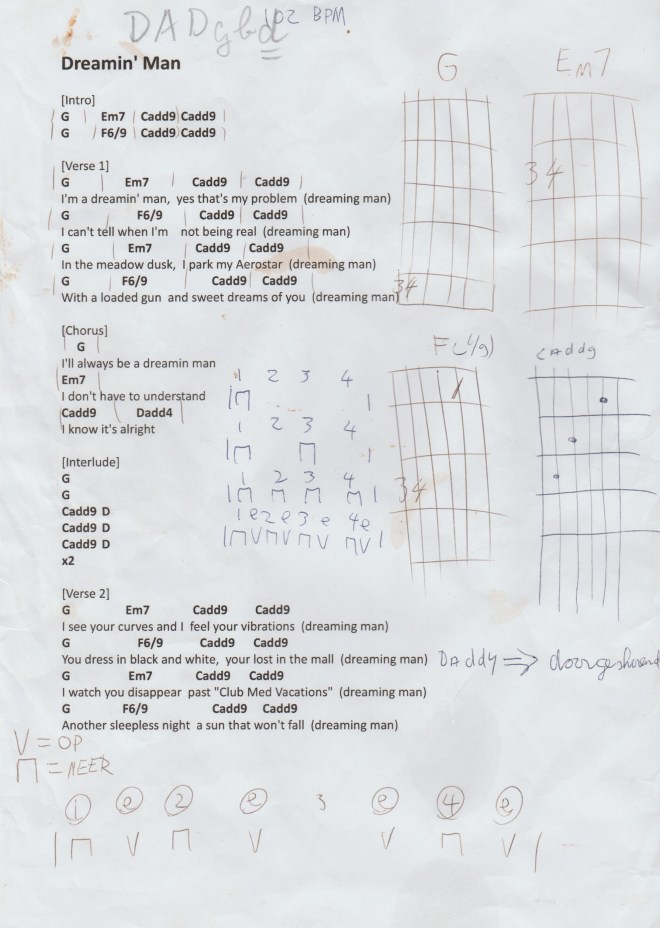 DADgbd 102 BPM
Dreamin' Man
G
Em7
[Intro]
| G | Em7 | Cadd9 | Cadd9 |
| G | F6/9 | Cadd9 | Cadd9 |
[Verse 1]
| G | Em7 | Cadd9 | Cadd9 |
I'm a dreamin' man, yes that's my problem (dreaming man)
34
| G | F6/9 | Cadd9 | Cadd9 |
I can't tell when I'm not being real (dreaming man)
| G | Em7 | Cadd9 | Cadd9 |
In the meadow dusk, I park my Aerostar (dreaming man)
| G | F6/9 | Cadd9 | Cadd9 |
With a loaded gun and sweet dreams of you (dreaming man)
34
[Chorus]
| G |
I'll always be a dreamin man
Em7
I don't have to understand
Cadd9 | Dadd4 |
I know it's alright
F(6/9)
CAdd9
1 2 3 4
1 2 3 4
[Interlude]
G
G
Cadd9 D
Cadd9 D
Cadd9 D
x2
1 2 3 4
1e2e3e 4e
34
[Verse 2]
G Em7 Cadd9 Cadd9
I see your curves and I feel your vibrations (dreaming man)
G F6/9 Cadd9 Cadd9
You dress in black and white, your lost in the mall (dreaming man)
DAdd4 ⇒
G Em7 Cadd9 Cadd9
I watch you disappear past "Club Med Vacations" (dreaming man)
G F6/9 Cadd9 Cadd9
Another sleepless night a sun that won't fall (dreaming man)
V = OP
⊓ = NEER
1 e 2 e 3 e 4 e
| ⊓ V ⊓ V V ⊓ V |